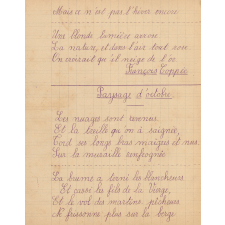 Mais ce n'est pas l'hiver encore
Une blonde lumière arrose
La nature, et dans l'air tout rose
On croirait qu'il neige de l'or.
François Coppée
Paysage d'octobre
Les nuages sont revenus
Et la treille qu'on a saignée,
Tord ses longs bras maigres et nus
Sur la muraille renfrognée
La brume a terni les blancheurs
Et cassé les fils de la Vierge,
Et le vol des martins pêcheurs
Ne frissonne plus sur la berge